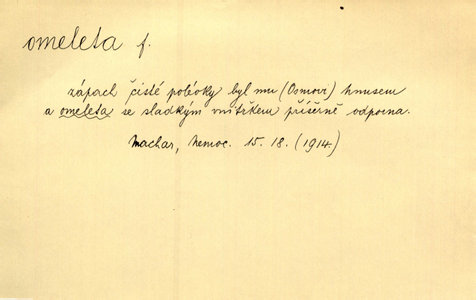 omeleta f.
zápach čisté polévky byl mu (Osmovi) hnusem
a omeleta se sladkým vnitřkem příšerně odporna.
Machar, Nemoc. 15. 18. (1914)